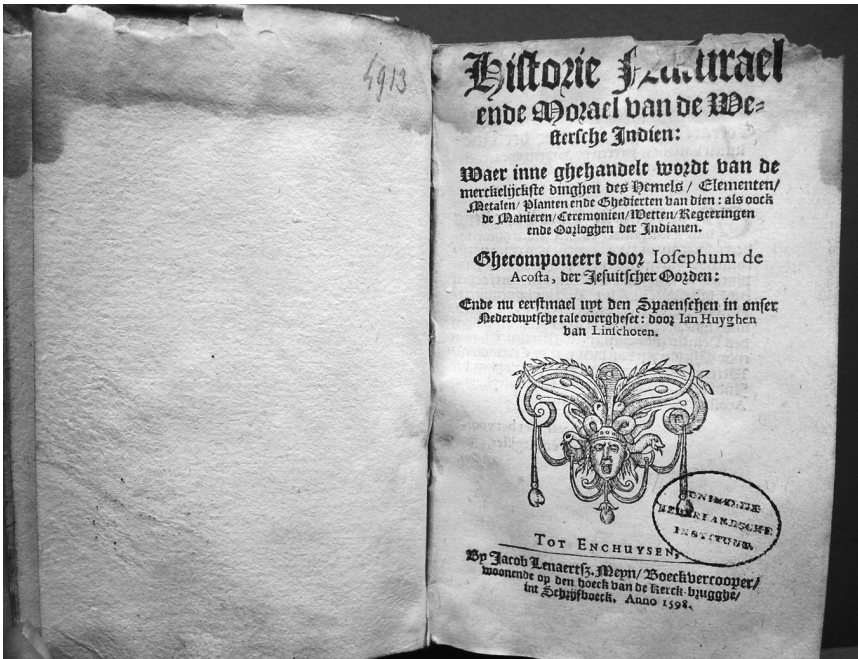 4913
Historie Naturael
ende Morael van de We-
stersche Indien:
Waer inne ghehandelt wordt van de
merckelijckste dinghen des Hemels / Elementen /
Metalen / Planten ende Ghedierten van dien : als oock
de Manieren / Ceremonien / Wetten / Regeeringen
ende Oorloghen der Indianen.
Ghecomponeert door Iosephum de
Acosta, der Jesuitscher Oorden:
Ende nu eerstmael uyt den Spaenschen in onser
Nederduytsche tale overgheset : door Ian Huyghen
van Linschoten.
NEDERLANDSCHE
INSTITUUT
TOT ENCHUYSEN,
By Jacob Lenaertsz. Meyn / Boeckvercooper /
woonende op den hoeck van de Kerck-brugghe /
int Schrijfboeck. Anno 1598.